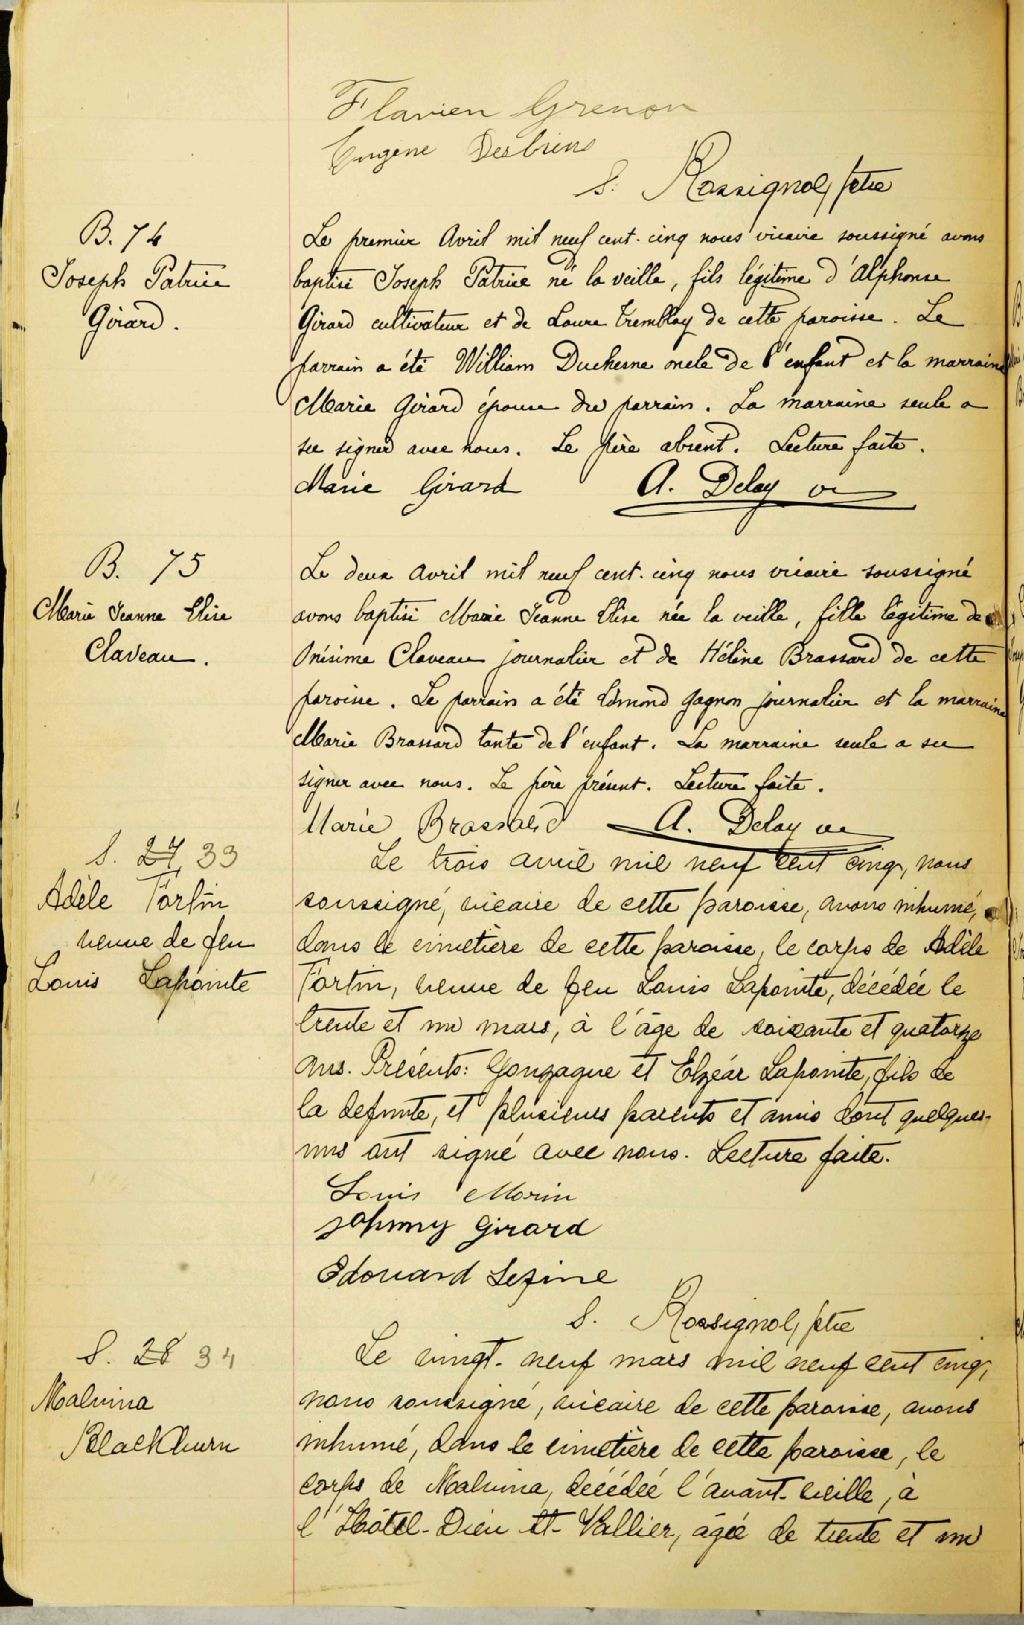 Flavien Grenon
Eugène Desbiens
S. Rossignol, ptre
B. 74
Joseph Patrice
Girard.
Le premier Avril mil neuf cent-cinq nous vicaire soussigné avons
baptisé Joseph Patrice né la veille, fils légitime d'Alphonse
Girard cultivateur et de Laure Tremblay de cette paroisse. Le
parrain a été William Duchesne oncle de l'enfant et la marraine
Marie Girard épouse du parrain. La marraine seule a
su signer avec nous. Le père absent. Lecture faite.
Marie Girard A. Delay vic
B. 75
Marie Jeanne Elise
Claveau.
Le deux Avril mil neuf cent-cinq nous vicaire soussigné
avons baptisé Marie Jeanne Elise née la veille, fille légitime de
Onésime Claveau journalier et de Hélène Brassard de cette
paroisse. Le parrain a été Edmond Gagnon journalier et la marraine
Marie Brassard tante de l'enfant. La marraine seule a su
signer avec nous. Le père présent. Lecture faite.
Marie Brassard A. Delay vic
S. 27, 33
Adèle Fortin
veuve de feu
Louis Lapointe
Le trois avril mil neuf cent cinq, nous
soussigné, vicaire de cette paroisse, avons inhumé,
dans le cimetière de cette paroisse, le corps de Adèle
Fortin, veuve de feu Louis Lapointe, décédée le
trente et un mars, à l'âge de soixante et quatorze
ans. Présents: Gonzague et Elzéar Lapointe, fils de
la defunte, et plusieurs parents et amis dont quelques-
uns ont signé avec nous. Lecture faite.
Louis Morin
Johnny Girard
Edouard Lezine
S. Rossignol, ptre
S. 28 34
Malvina
Blackburn
Le vingt-neuf mars mil neuf cent cinq,
nous soussigné, vicaire de cette paroisse, avons
inhumé, dans le cimetière de cette paroisse, le
corps de Malvina, décédée l'avant-veille, à
l'Hôtel-Dieu St-Vallier, âgée de trente et un